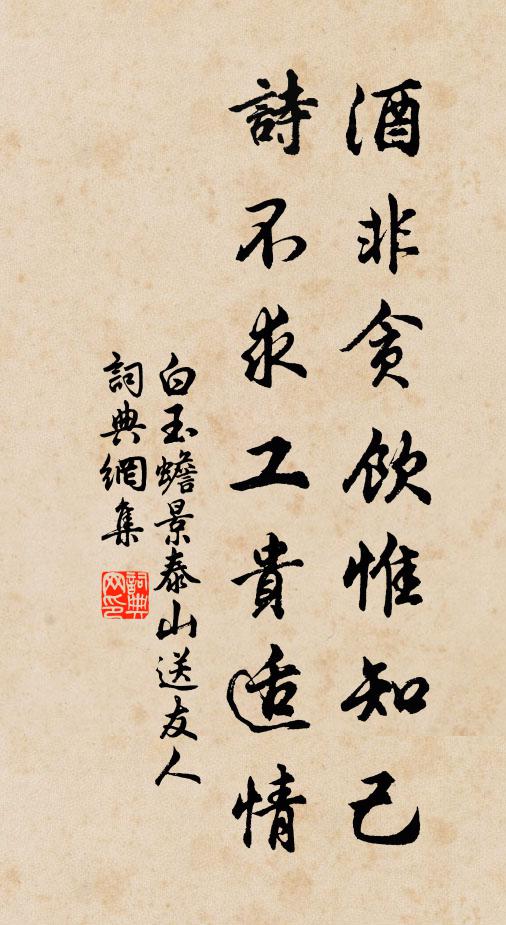 酒非貪飲惟知己
詩不求工貴适情
白玉蟾景泰山送友人
詞典網集
詞典网印